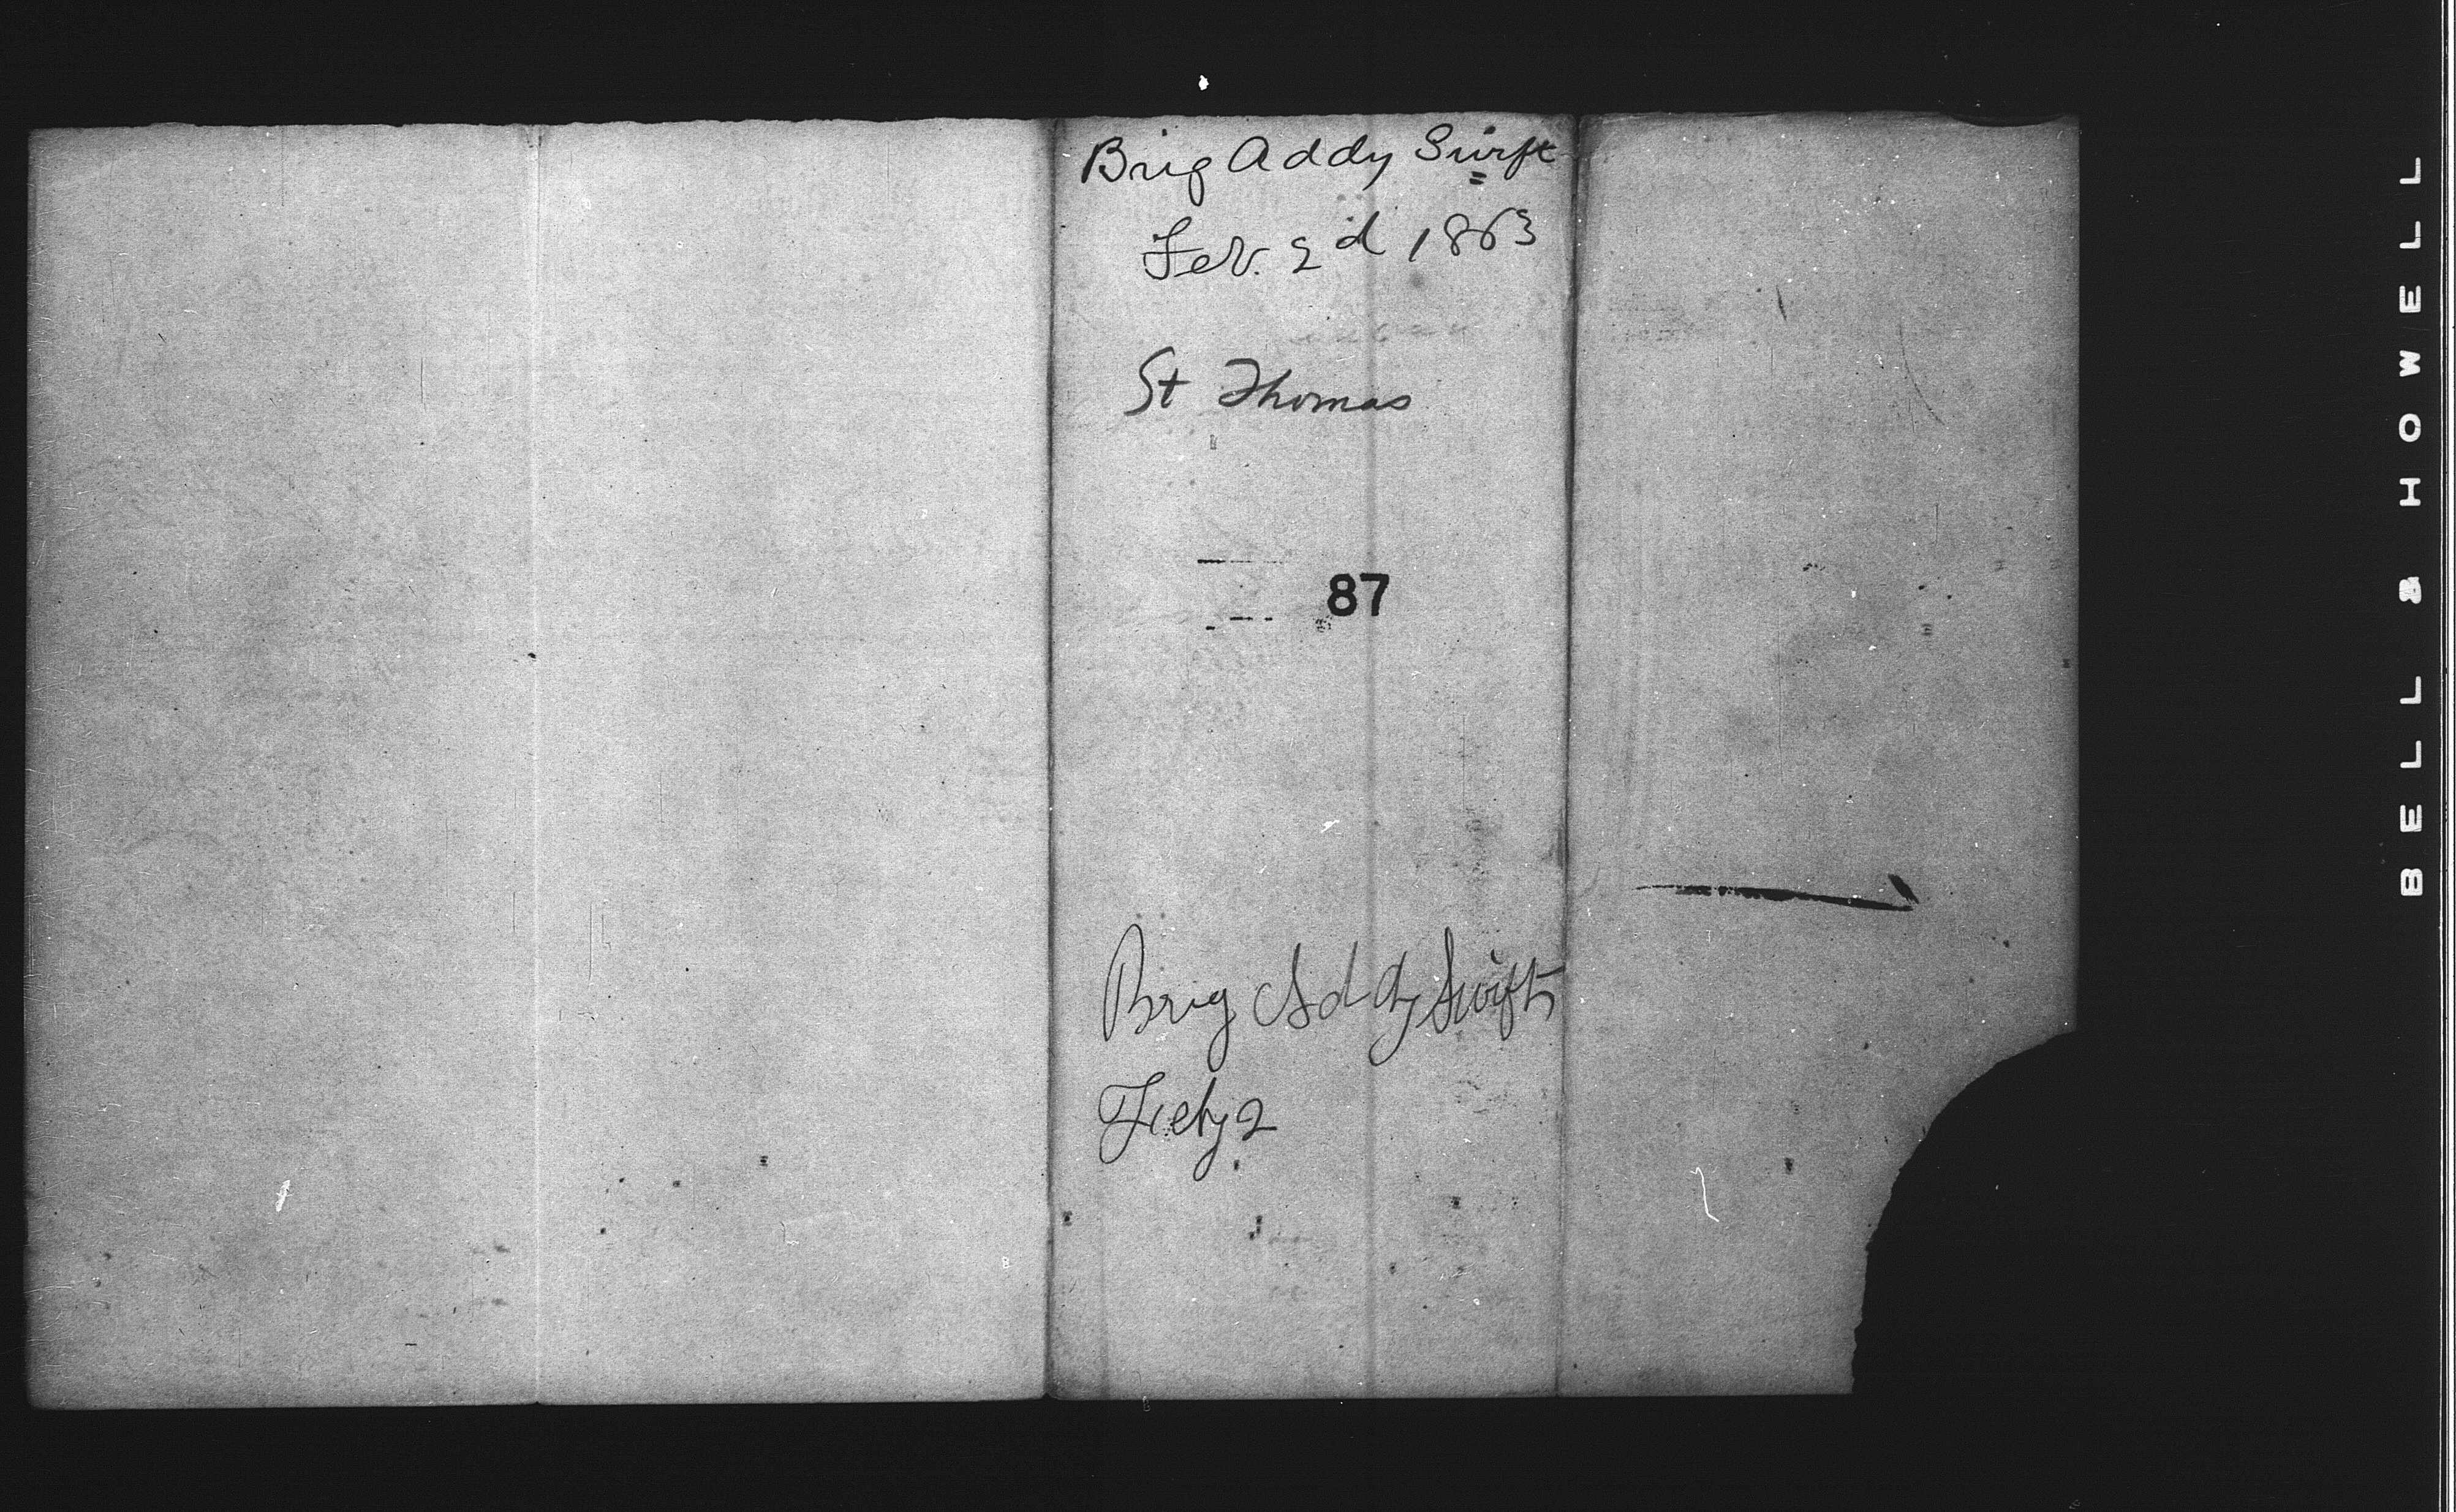 Brig Addy Swift
Feb. 2d 1863
St Thomas
87
Brig Addy Swift
Feby 2
BELL & HOWELL